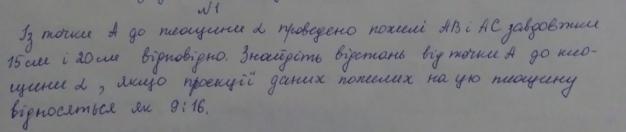 №1
Із точки А до площини α проведено похилі АВ і АС завдовжки
15см і 20см відповідно. Знайдіть відстань від точки А до пло-
щини α, якщо проекції даних похилих на цю площину
відносяться як 9:16.